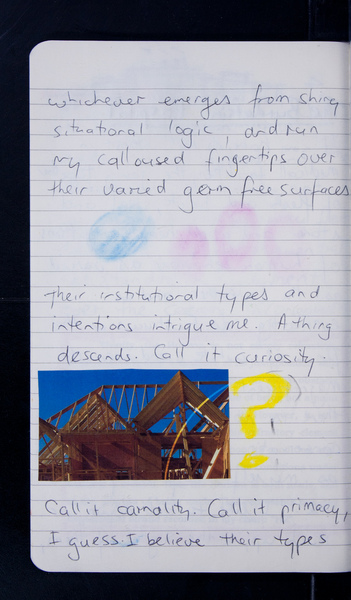 whichever emerges from shiny
situational logic, and run
my calloused fingertips over
their varied germ free surfaces
Their institutional types and
intentions intrigue me. A thing
descends. Call it curiosity.
?
Call it carnality. Call it primacy,
I guess. I believe their types